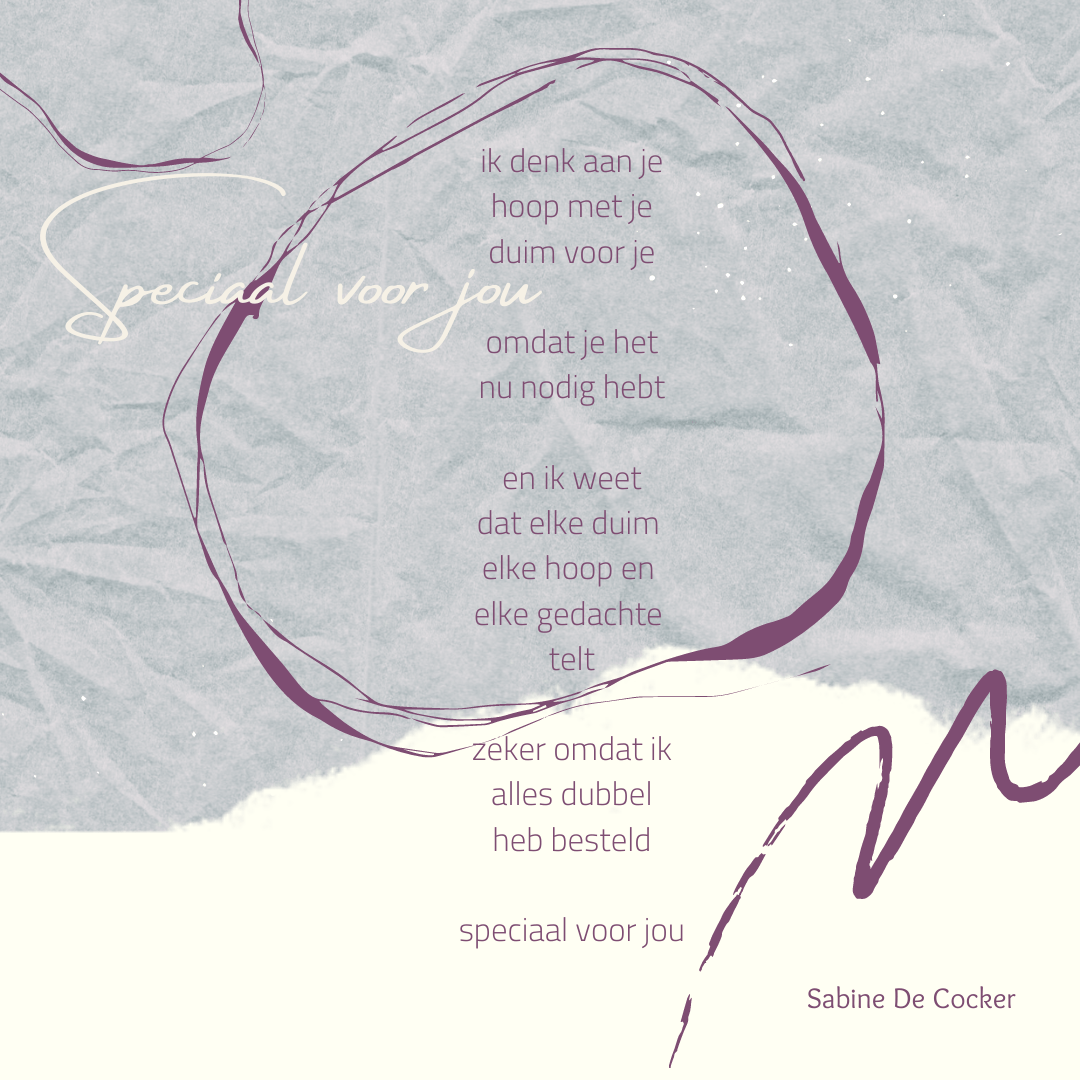 Speciaal voor jou
ik denk aan je
hoop met je
duim voor je
omdat je het
nu nodig hebt
en ik weet
dat elke duim
elke hoop en
elke gedachte
telt
zeker omdat ik
alles dubbel
heb besteld
speciaal voor jou
Sabine De Cocker